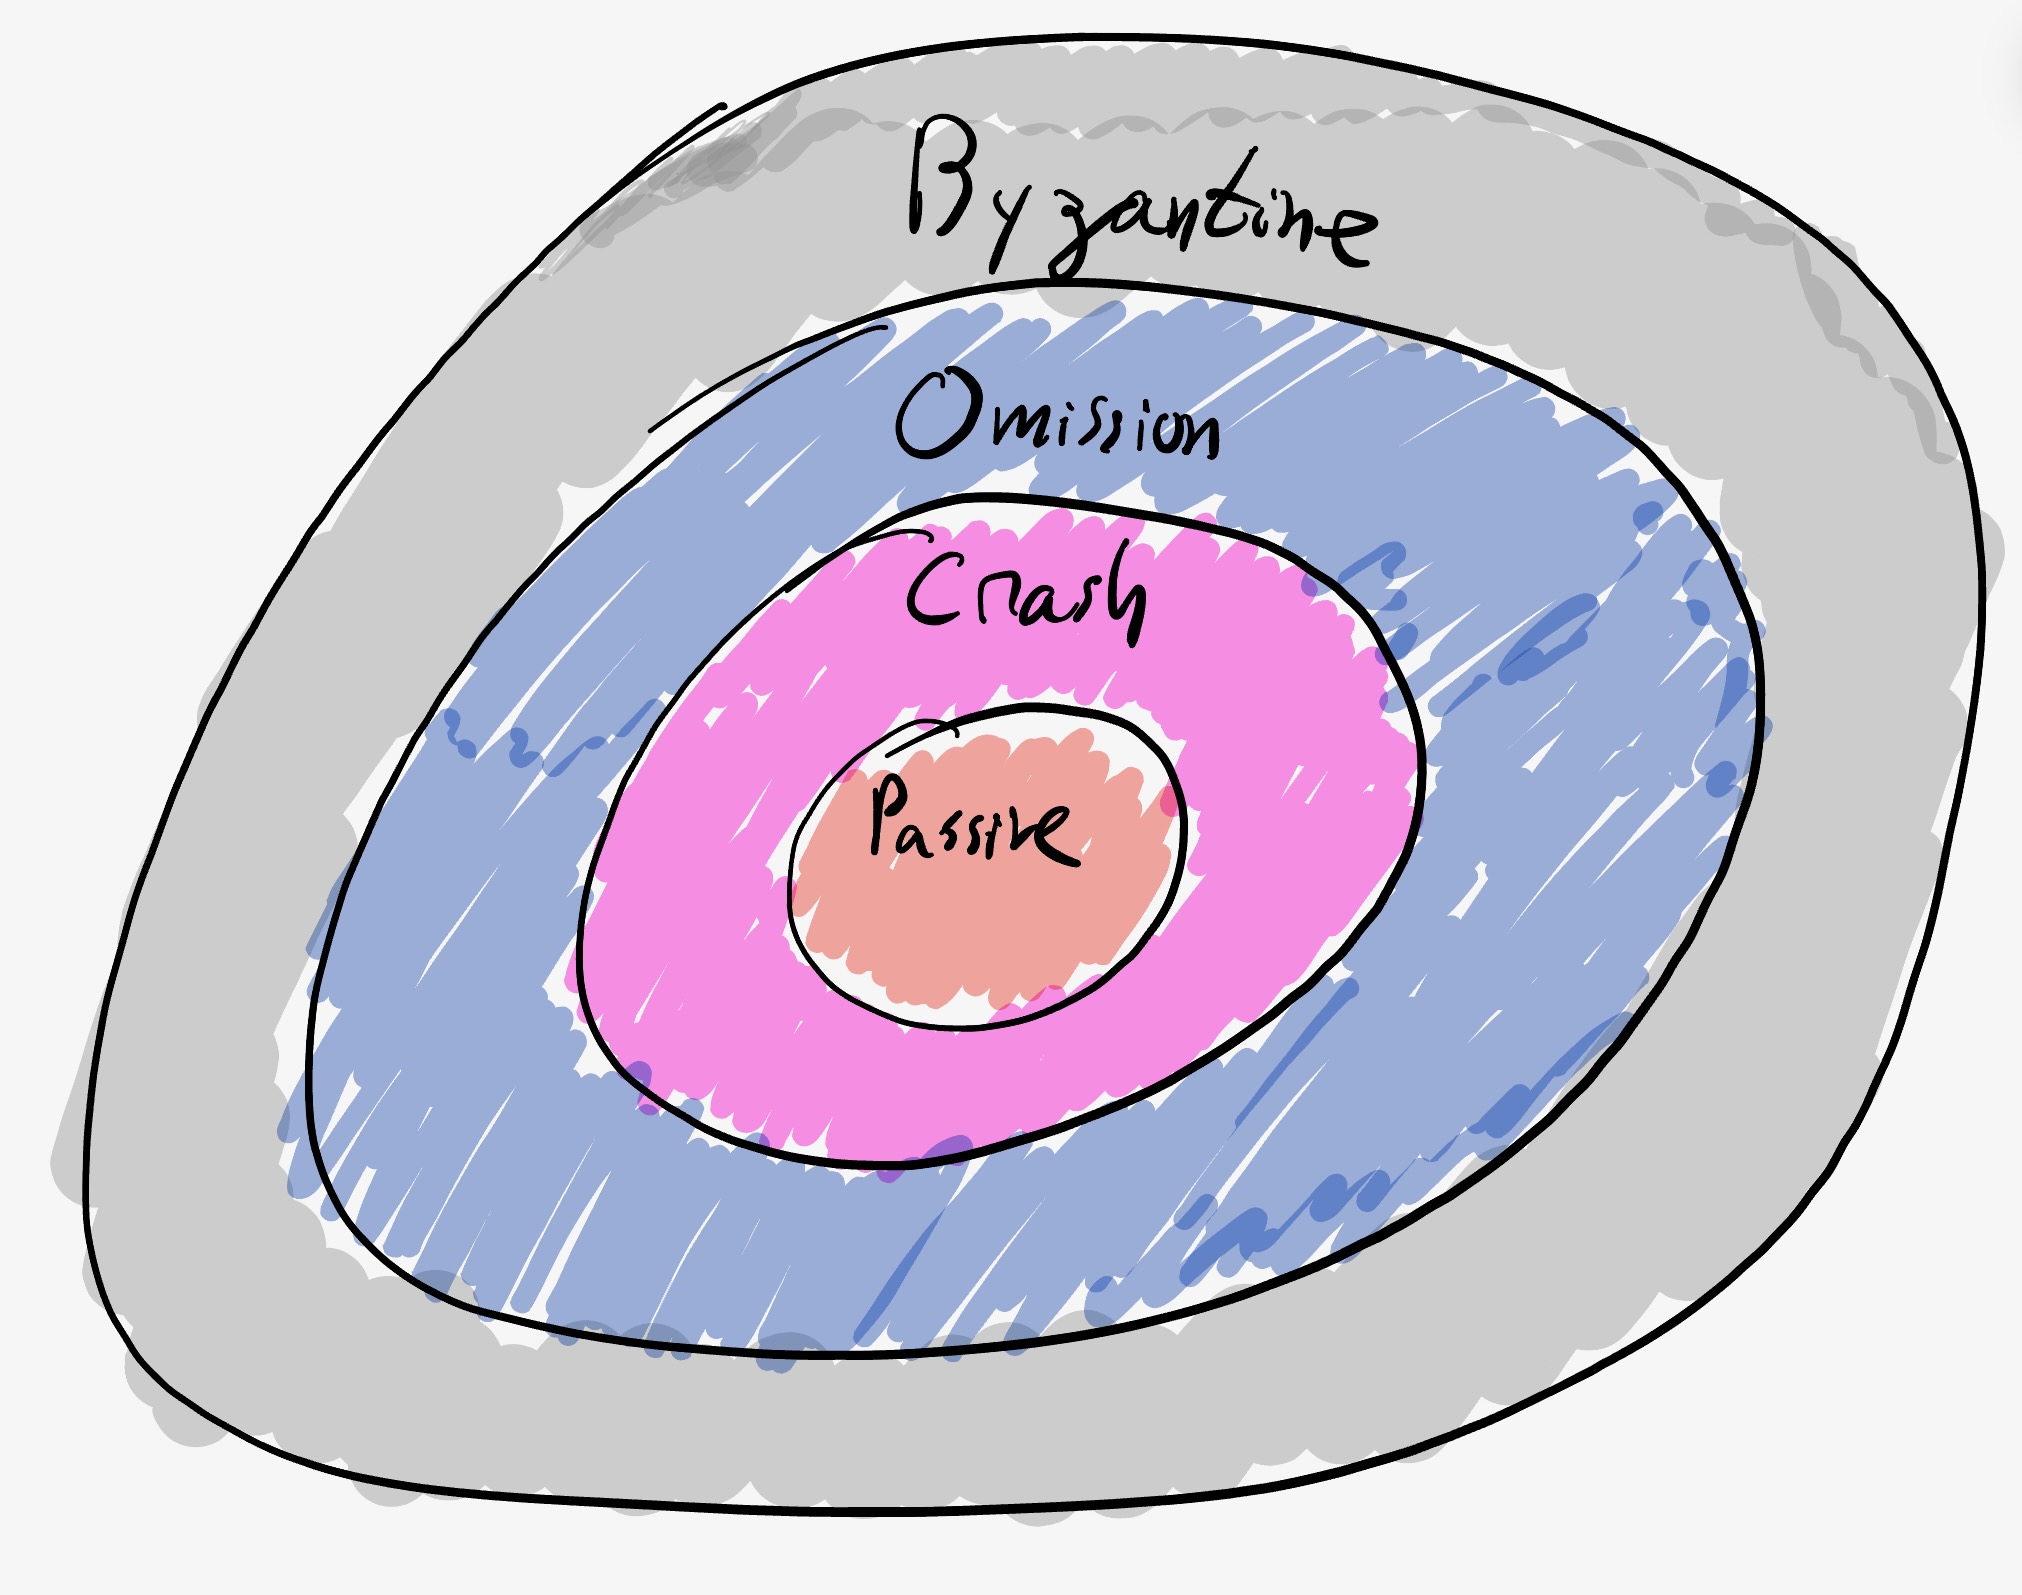 Byzantine
Omission
Crash
Passive